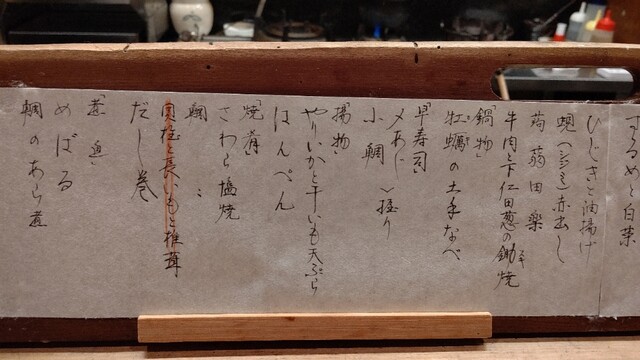 するめと白菜
ひじきと油揚げ
蜆(シジミ)赤出し
蒟蒻田楽
牛肉と下仁田葱の鋤焼
スキ
「鍋物」
牡蠣の土手なべ
「早寿司」
〆あじ
小鯛
握り
「揚物」
やりいかと干いも天ぷら
はんぺん
「焼肴」
さわら塩焼
鯛 〃
貝柱と長いもと椎茸
だし巻
「煮魚」
めばる
鯛のあら煮